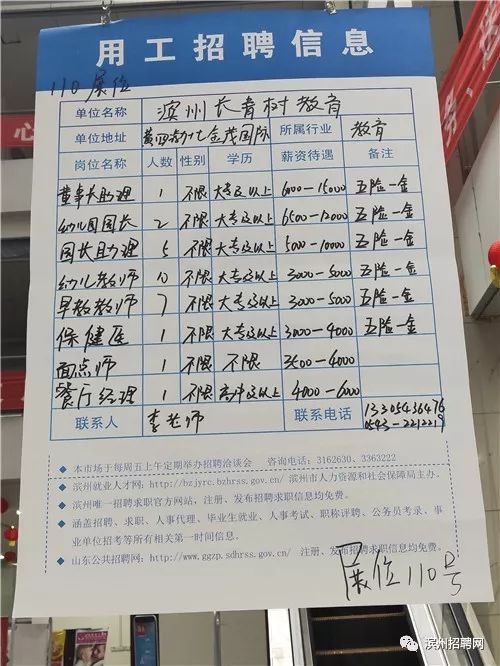 用工招聘信息
110展位
单位名称 滨州长青树教育
单位地址 黄四渤七金茂国际 所属行业 教育
岗位名称 人数 性别 学历 薪资待遇 备注
董事长助理 1 不限 大专及以上 6000-15000 五险一金
幼儿园园长 2 不限 大专及以上 6500-12000 五险一金
园长助理 5 不限 大专及以上 5000-10000 五险一金
幼儿教师 10 不限 大专及以上 3000-5000 五险一金
早教教师 7 不限 大专及以上 3000-5000 五险一金
保健医 1 不限 大专及以上 3000-4000 五险一金
面点师 1 不限 不限 3500-4000
餐厅经理 1 不限 高中及以上 4000-6000
联系人 李老师 联系电话 13305436476
0543-2212219
◆ 本市场于每周五上午定期举办招聘洽谈会 咨询电话:3162630、3363222
◆ 滨州就业人才网:http://bzjyrc.bzhrss.gov.cn/ 滨州市人力资源和社会保障局主办。
◆ 滨州唯一招聘求职官方网站,注册、发布招聘求职信息均免费。
◆ 涵盖招聘、求职、人事代理、毕业生就业、人事考试、职称评聘、公务员考录、事
业单位招考等所有相关第一时间信息。
◆ 山东公共招聘网:http://www.ggzp.sdhrss.gov.cn/ 注册、发布招聘求职信息均免费。
展位110号
滨州招聘网